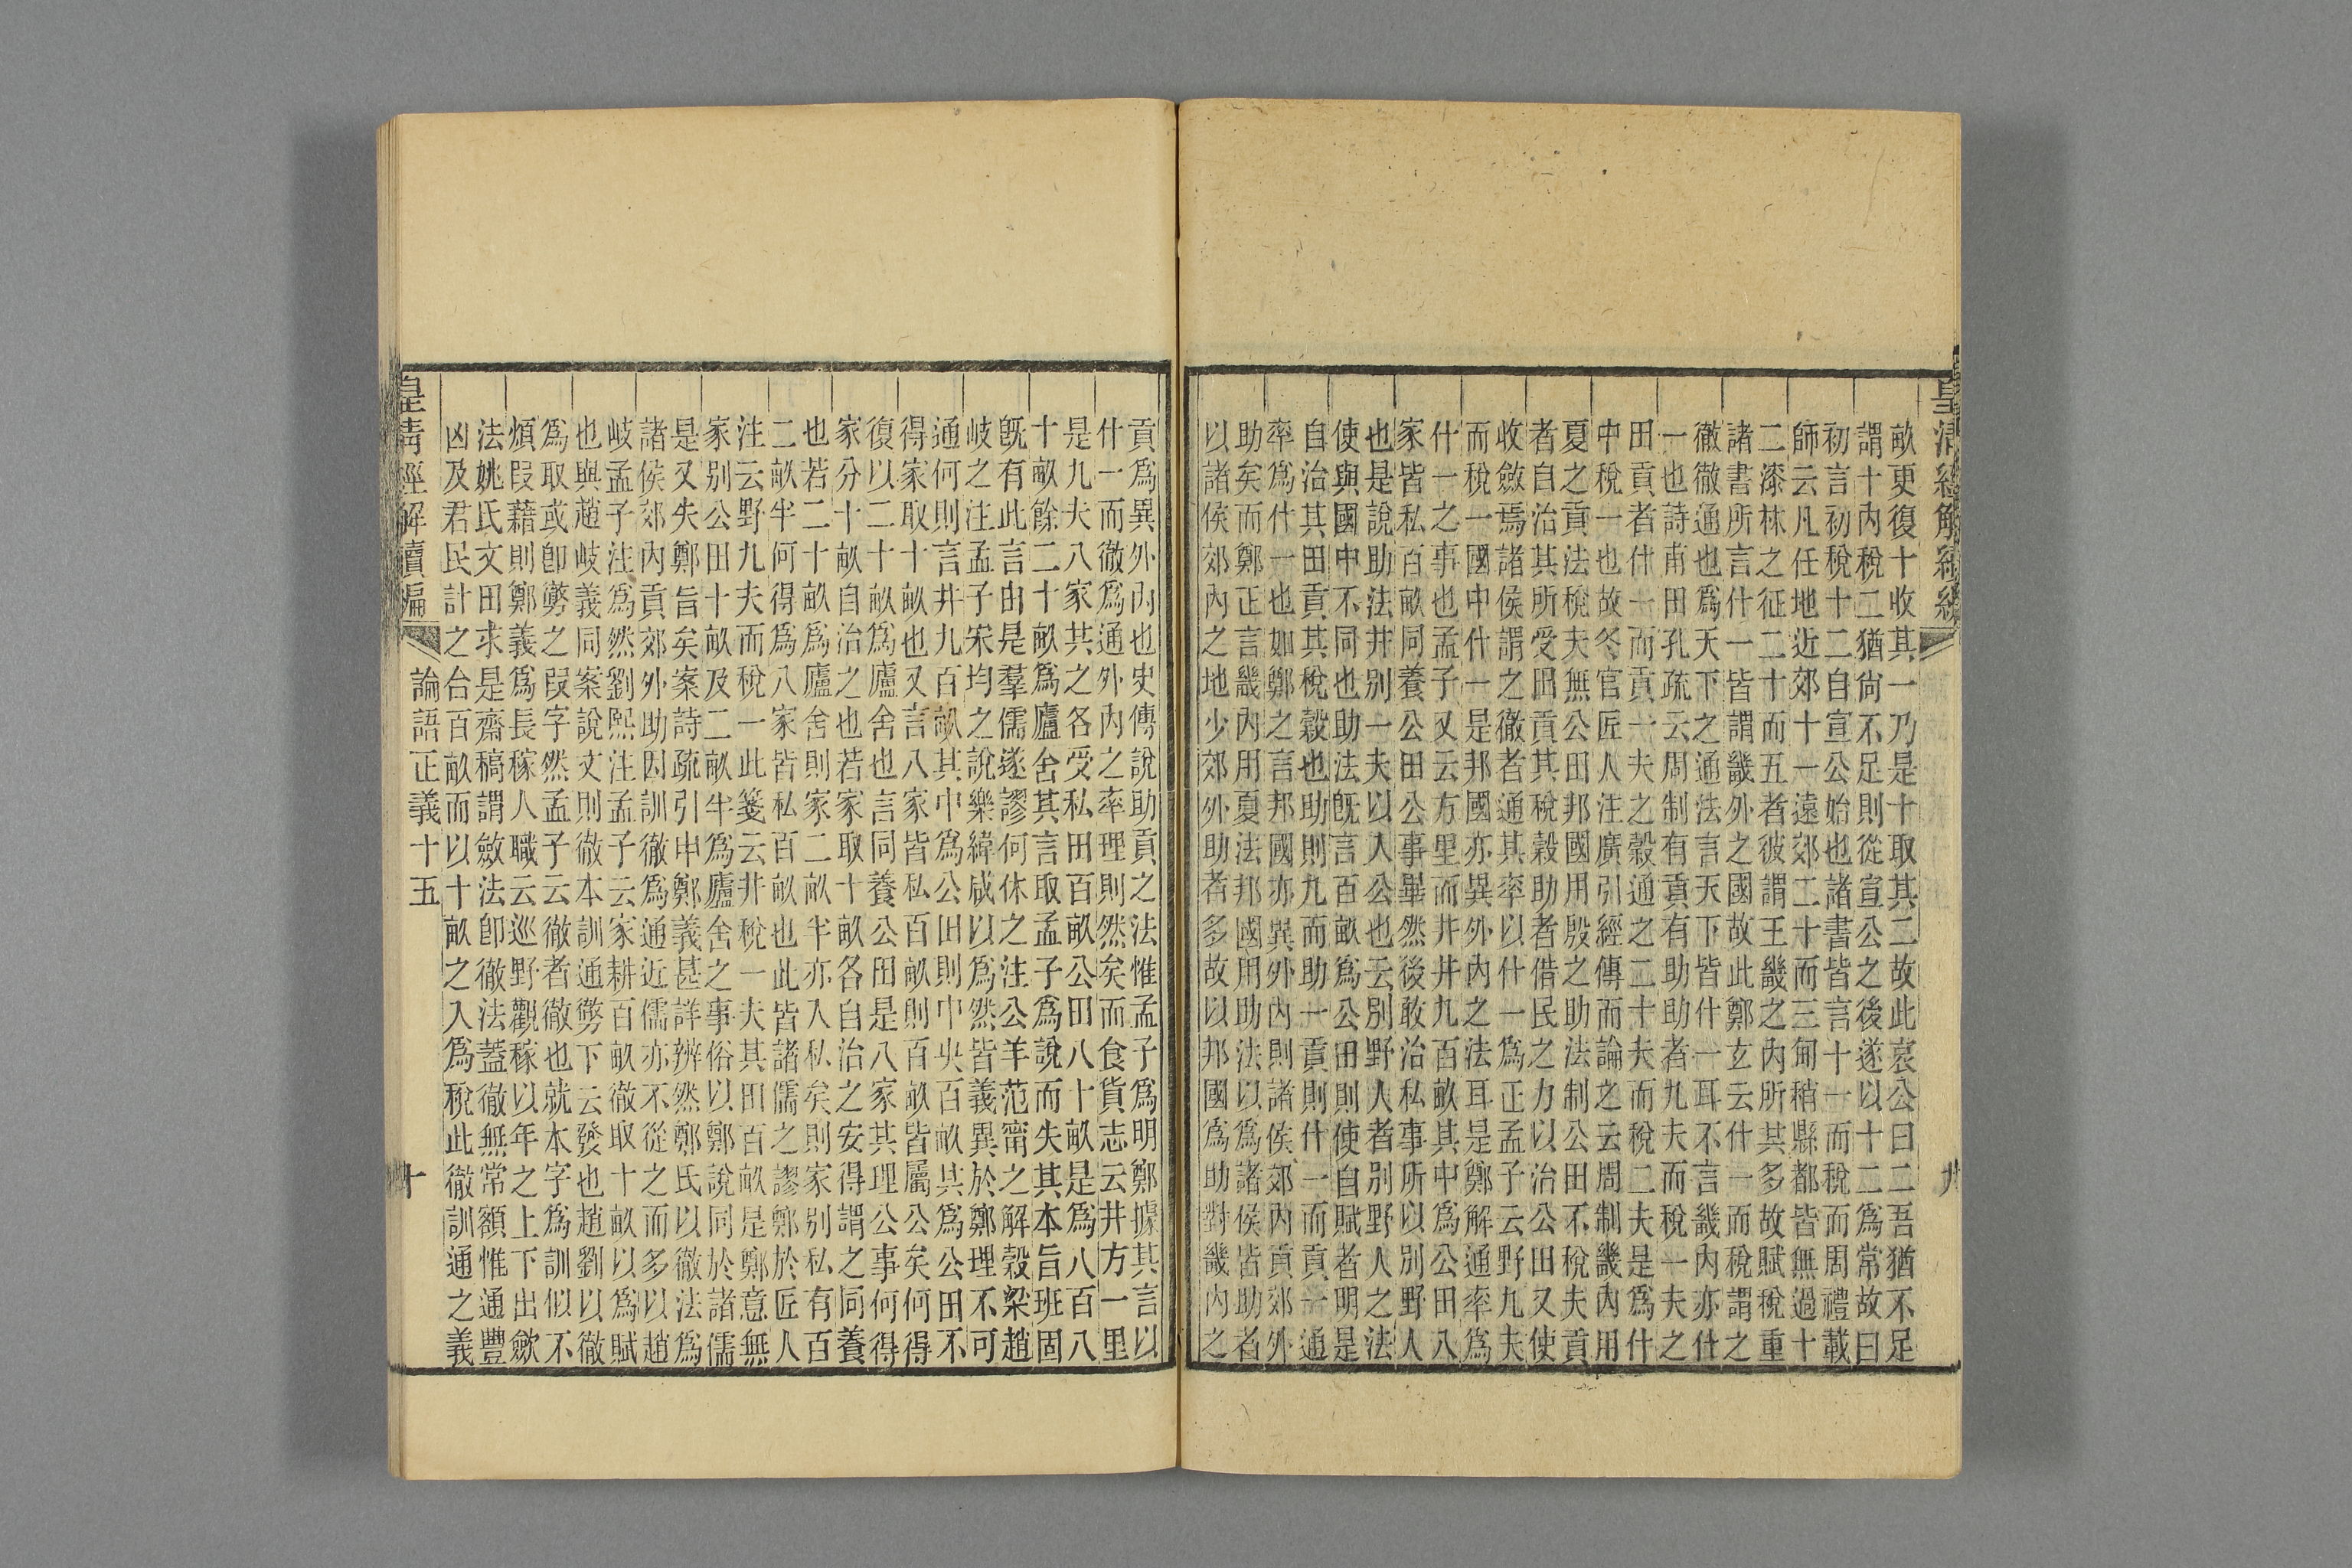 皇清經解續編
畝更復十收其一乃是十取其二故此哀公曰二吾猶不足
謂十內稅二猶尙不足則從宣公之後遂以十二爲常故曰
初言初稅十二自宣公始也諸書皆言十一而稅而周禮載
師云凡任地近郊十一遠郊二十而三甸稍縣都皆無過十
二漆林之征二十而五者彼謂王畿之內所其多故賦稅重
諸書所言什一皆謂畿外之國故此鄭玄云什一而稅謂之
徹徹通也爲天下之通法言天下皆什一耳不言畿內亦什
一也詩甫田孔疏云周制有貢有助助者九夫而稅一夫之
田貢者什一而貢一夫之穀通之二十夫而稅二夫是爲什
中稅一也故冬官匠人注廣引經傳而論之云周制畿內用
夏之貢法稅夫無公田邦國用殷之助法制公田不稅夫貢
者自治其所受田貢其稅穀助者借民之力以治公田又使
收斂焉諸侯謂之徹者通其率以什一爲正孟子云野九夫
而稅一國中什一是邦國亦異外內之法耳是鄭解通率爲
什一之事也孟子又云方里而井井九百畝其中爲公田八
家皆私百畝同養公田公事畢然後敢治私事所以別野人
也是說助法井別一夫以入公也云別野人者別野人之法
使與國中不同也助法旣言百畝爲公田則使自賦者明是
自治其田貢其稅穀也助則九而助一貢則什一而貢一通
率爲什一也如鄭之言邦國亦異外內則諸侯郊內貢郊外
助矣而鄭正言畿內用夏法邦國用助法以爲諸侯皆助者
以諸侯郊內之地少郊外助者多故以邦國爲助對畿內之
貢爲異外內也史傳說助貢之法惟孟子爲明鄭據其言以
什一而徹爲通外內之率理則然矣而食貨志云井方一里
是九夫八家共之各受私田百畝公田八十畝是爲八百八
十畝餘二十畝爲廬舍其言取孟子爲說而失其本旨班固
旣有此言由是羣儒遂謬何休之注公羊范甯之解穀梁趙
岐之注孟子宋均之說樂緯咸以爲然皆義異於鄭理不可
通何則言井九百畝其中爲公田則中央百畝共爲公田不
得家取十畝也又言八家皆私百畝則百畝皆屬公矣何得
復以二十畝爲廬舍也言同養公田是八家共理公事何得
家分十畝自治之也若家取十畝各自治之安得謂之同養
也若二十畝爲廬舍則家二畝半亦入私矣則家別私有百
二畝半何得爲八家皆私百畝也此皆諸儒之謬鄭於匠人
注云野九夫而稅一此箋云井稅一夫其田百畝是鄭意無
家別公田十畝及二畝半爲廬舍之事俗以鄭說同於諸儒
是又失鄭旨矣案詩疏引申鄭義甚詳辨然鄭氏以徹法爲
諸侯郊內貢郊外助因訓徹爲通近儒亦不從之而多以趙
岐孟子注爲然劉熙注孟子云家耕百畝徹取十畝以爲賦
也與趙岐義同案說文則徹本訓通勶下云發也趙劉以徹
爲取或卽勶之叚字然孟子云徹者徹也就本字爲訓似不
煩叚藉則鄭義爲長稼人職云巡野觀稼以年之上下出斂
法姚氏文田求是齋稿謂斂法卽徹法蓋徹無常額惟通豐
凶及君民計之台百畝而以十畝之入爲稅此徹訓通之義
皇淸經解續編 論語正義十五 十